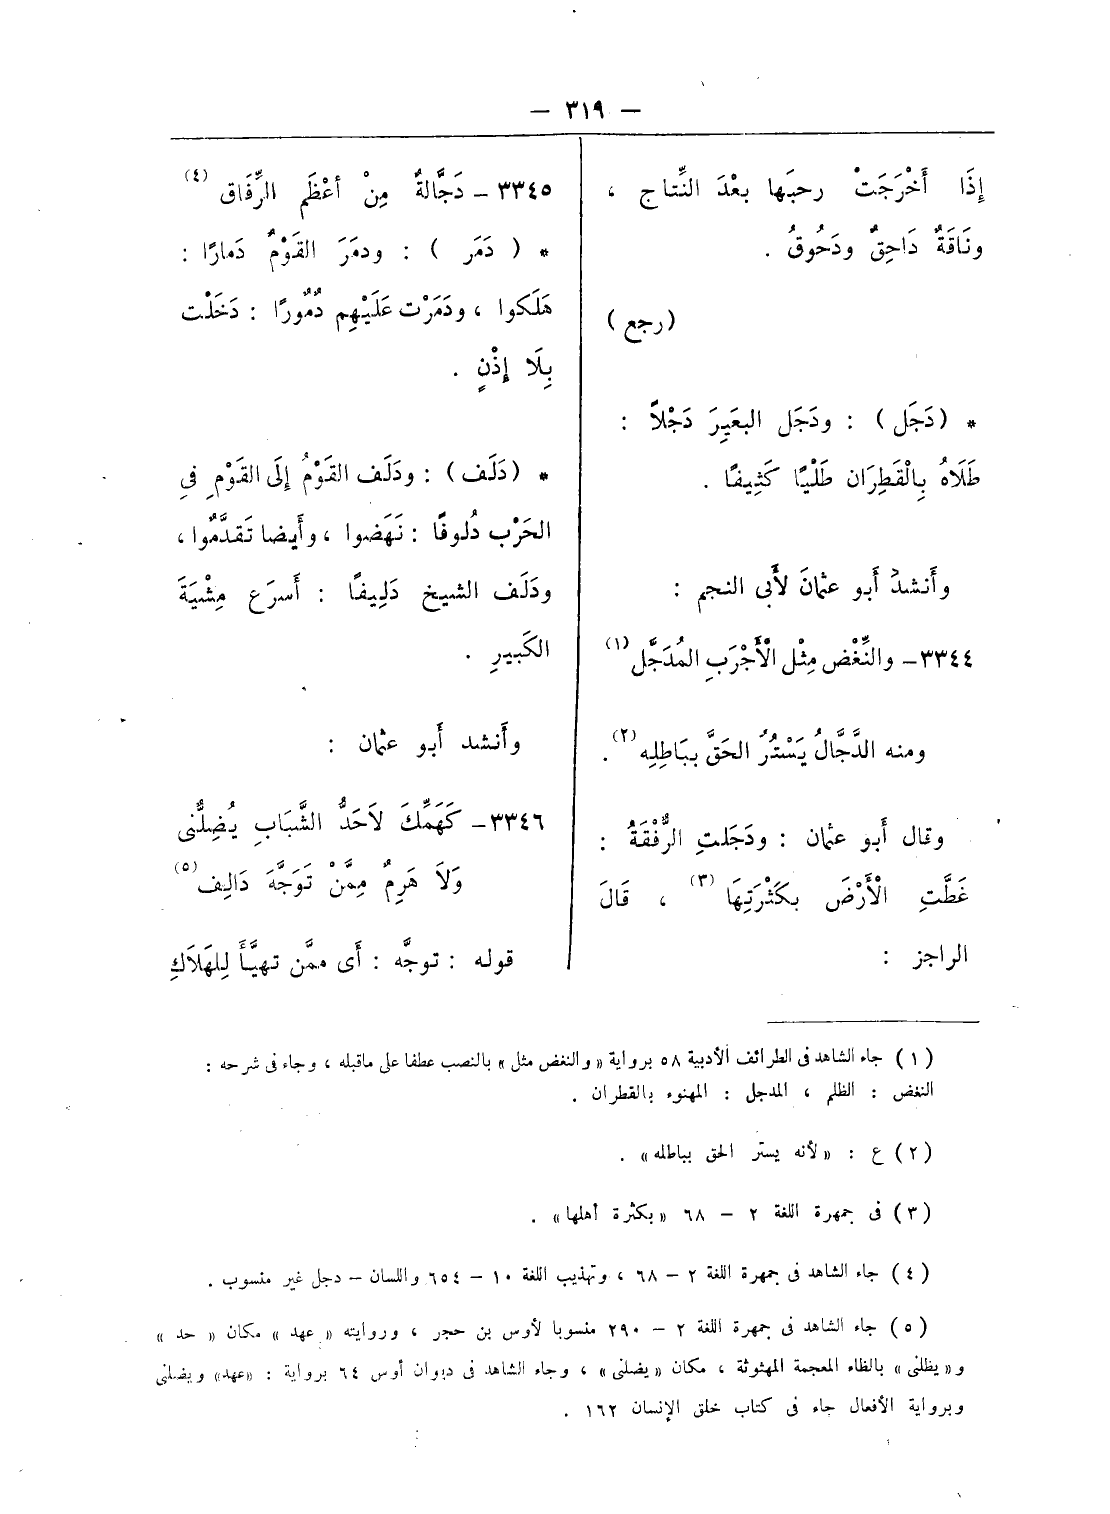 — ٣١٩ —
إِذَا أَخْرَجَتْ رحبَها بعْدَ النِّتاج ،
ونَاقَةٌ دَاحِقٌ ودَحُوقُ .
(رجع)
* (دَجَل) : ودَجَل البعَيِرَ دَجْلاً :
طَلَاهُ بِالْقَطِرَان طَلْيًا كَثِيفًا .
وأَنشدَ أَبو عثمانَ لأَبى النجم :
٣٣٤٤ – والنِّغْض مِثْل الْأَجْرَبِ المُدَجَّل (١)
ومنه الدَّجَّالُ يَسْتُرُ الحَقَّ ببَاطِلِه (٢) .
وقال أَبو عثمان : ودَجَلتِ الرُّفْقَةُ :
غَطَّتِ الْأَرْضَ بكَثْرَتِهَا (٣) ، قَالَ
الراجز :
٣٣٤٥ – دَجَّالةٌ مِنْ أعْظَمِ الرِّفَاقِ (٤)
* ( دَمَر ) : ودمَرَ القَوْمُ دَمارًا :
هَلَكوا ، ودَمَرْت عَلَيْهِم دُمُورًا : دَخَلْت
بِلَا إِذْنٍ .
* (دَلَف) : ودَلَف القَوْمُ إِلَى القَوْمِ فىِ
الحَرْب دُلوفًا : نَهَضوا ، وأَيضا تَقدَّمُوا ،
ودَلَف الشيخ دَلِيفًا : أَسرَع مِشْيَةَ
الكَبيرِ .
وأَنشد أَبو عثمان :
٣٣٤٦ – كَهَمِّكَ لاَحَدُّ الشَّبَابِ يُضِلُّنى
وَلاَ هَرِمٌ مِمَّنْ تَوَجَّهَ دَالِف (٥)
قوله : توجَّه : أَى ممَّن تهيَّأَ لِلهَلاَكِ
(١) جاء الشاهد فى الطرائف الأدبية ٥٨ برواية «والنغض مثل» بالنصب عطفا على ماقبله ، وجاء فى شرحه :
النغض : الظلم ، المدجل : المهنوء بالقطران .
(٢) ع : «لأنه يستر الحق بباطله» .
(٣) فى جمهرة اللغة ٢ – ٦٨ «بكثرة أهلها» .
(٤) جاء الشاهد فى جمهرة اللغة ٢ – ٦٨ ، وتهذيب اللغة ١٠ – ٦٥٤ واللسان – دجل غير منسوب .
(٥) جاء الشاهد فى جمهرة اللغة ٢ – ٢٩٠ منسوبا لأوس بن حجر ، وروايته «عهد» مكان «حد»
و«يظلنى» بالظاء المعجمة المهثوثة ، مكان «يضلنى» ، وجاء الشاهد فى ديوان أوس ٦٤ برواية : «عهد» ويضلنى
وبرواية الأفعال جاء فى كتاب خلق الإنسان ١٦٢ .